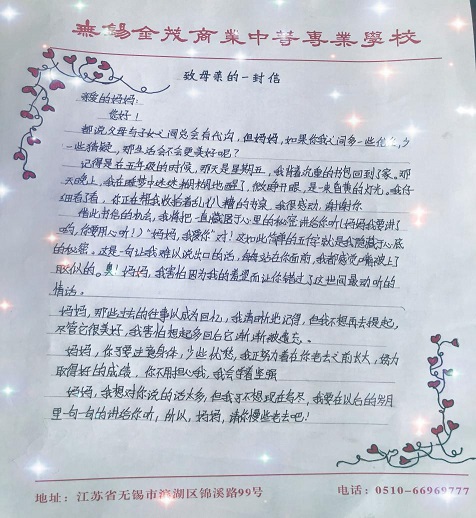 無錫金茂商業中等專業學校
致母亲的一封信
亲爱的妈妈:
您好!
都说父母与子女之间总会有代沟,但妈妈,如果你我之间多一些 少
一些猜疑,那生活会不会更美好呢?
记得是在五年级的时候,那天是星期五,我背着沉重的书包回到了家。那
天晚上,我在睡梦中迷迷糊糊地醒了,微睁开眼,是一束白黄的灯光。我仔
细看看,你正在帮我收拾着乱八糟的书桌,我很感动,谢谢你
借此书信的机会,我将把一直藏匿于心里的秘密讲给你听(妈妈我要讲了
哟,你要用心听!)“妈妈,我爱你”对!这如此简单的五个字就是我隐藏于心底
的秘密。这是一句让我难以说出口的话,每每站在你面前,我都感觉嘴被上了
胶似的。 妈妈,我害怕因为我的羞涩而让你错过了这世间最动听的
情话。
妈妈,那些过去的往事以成为回忆,我清晰地记得,但我不想再去提起,
尽管它很美好,我害怕想起多回后它渐渐被遗忘。
妈妈,你可要注意身体,少些忧愁,我正努力着在你老去之前长大,努力
取得好的成绩,你不用担心我,我会学着坚强
妈妈,我想对你说的话太多,但我可不想现在写尽,我要在以后的岁月
里一句一句的讲给你听,所以,妈妈,请你慢些老去吧!
地址:江苏省无锡市滨湖区锦溪路99号
电话:0510-66969777